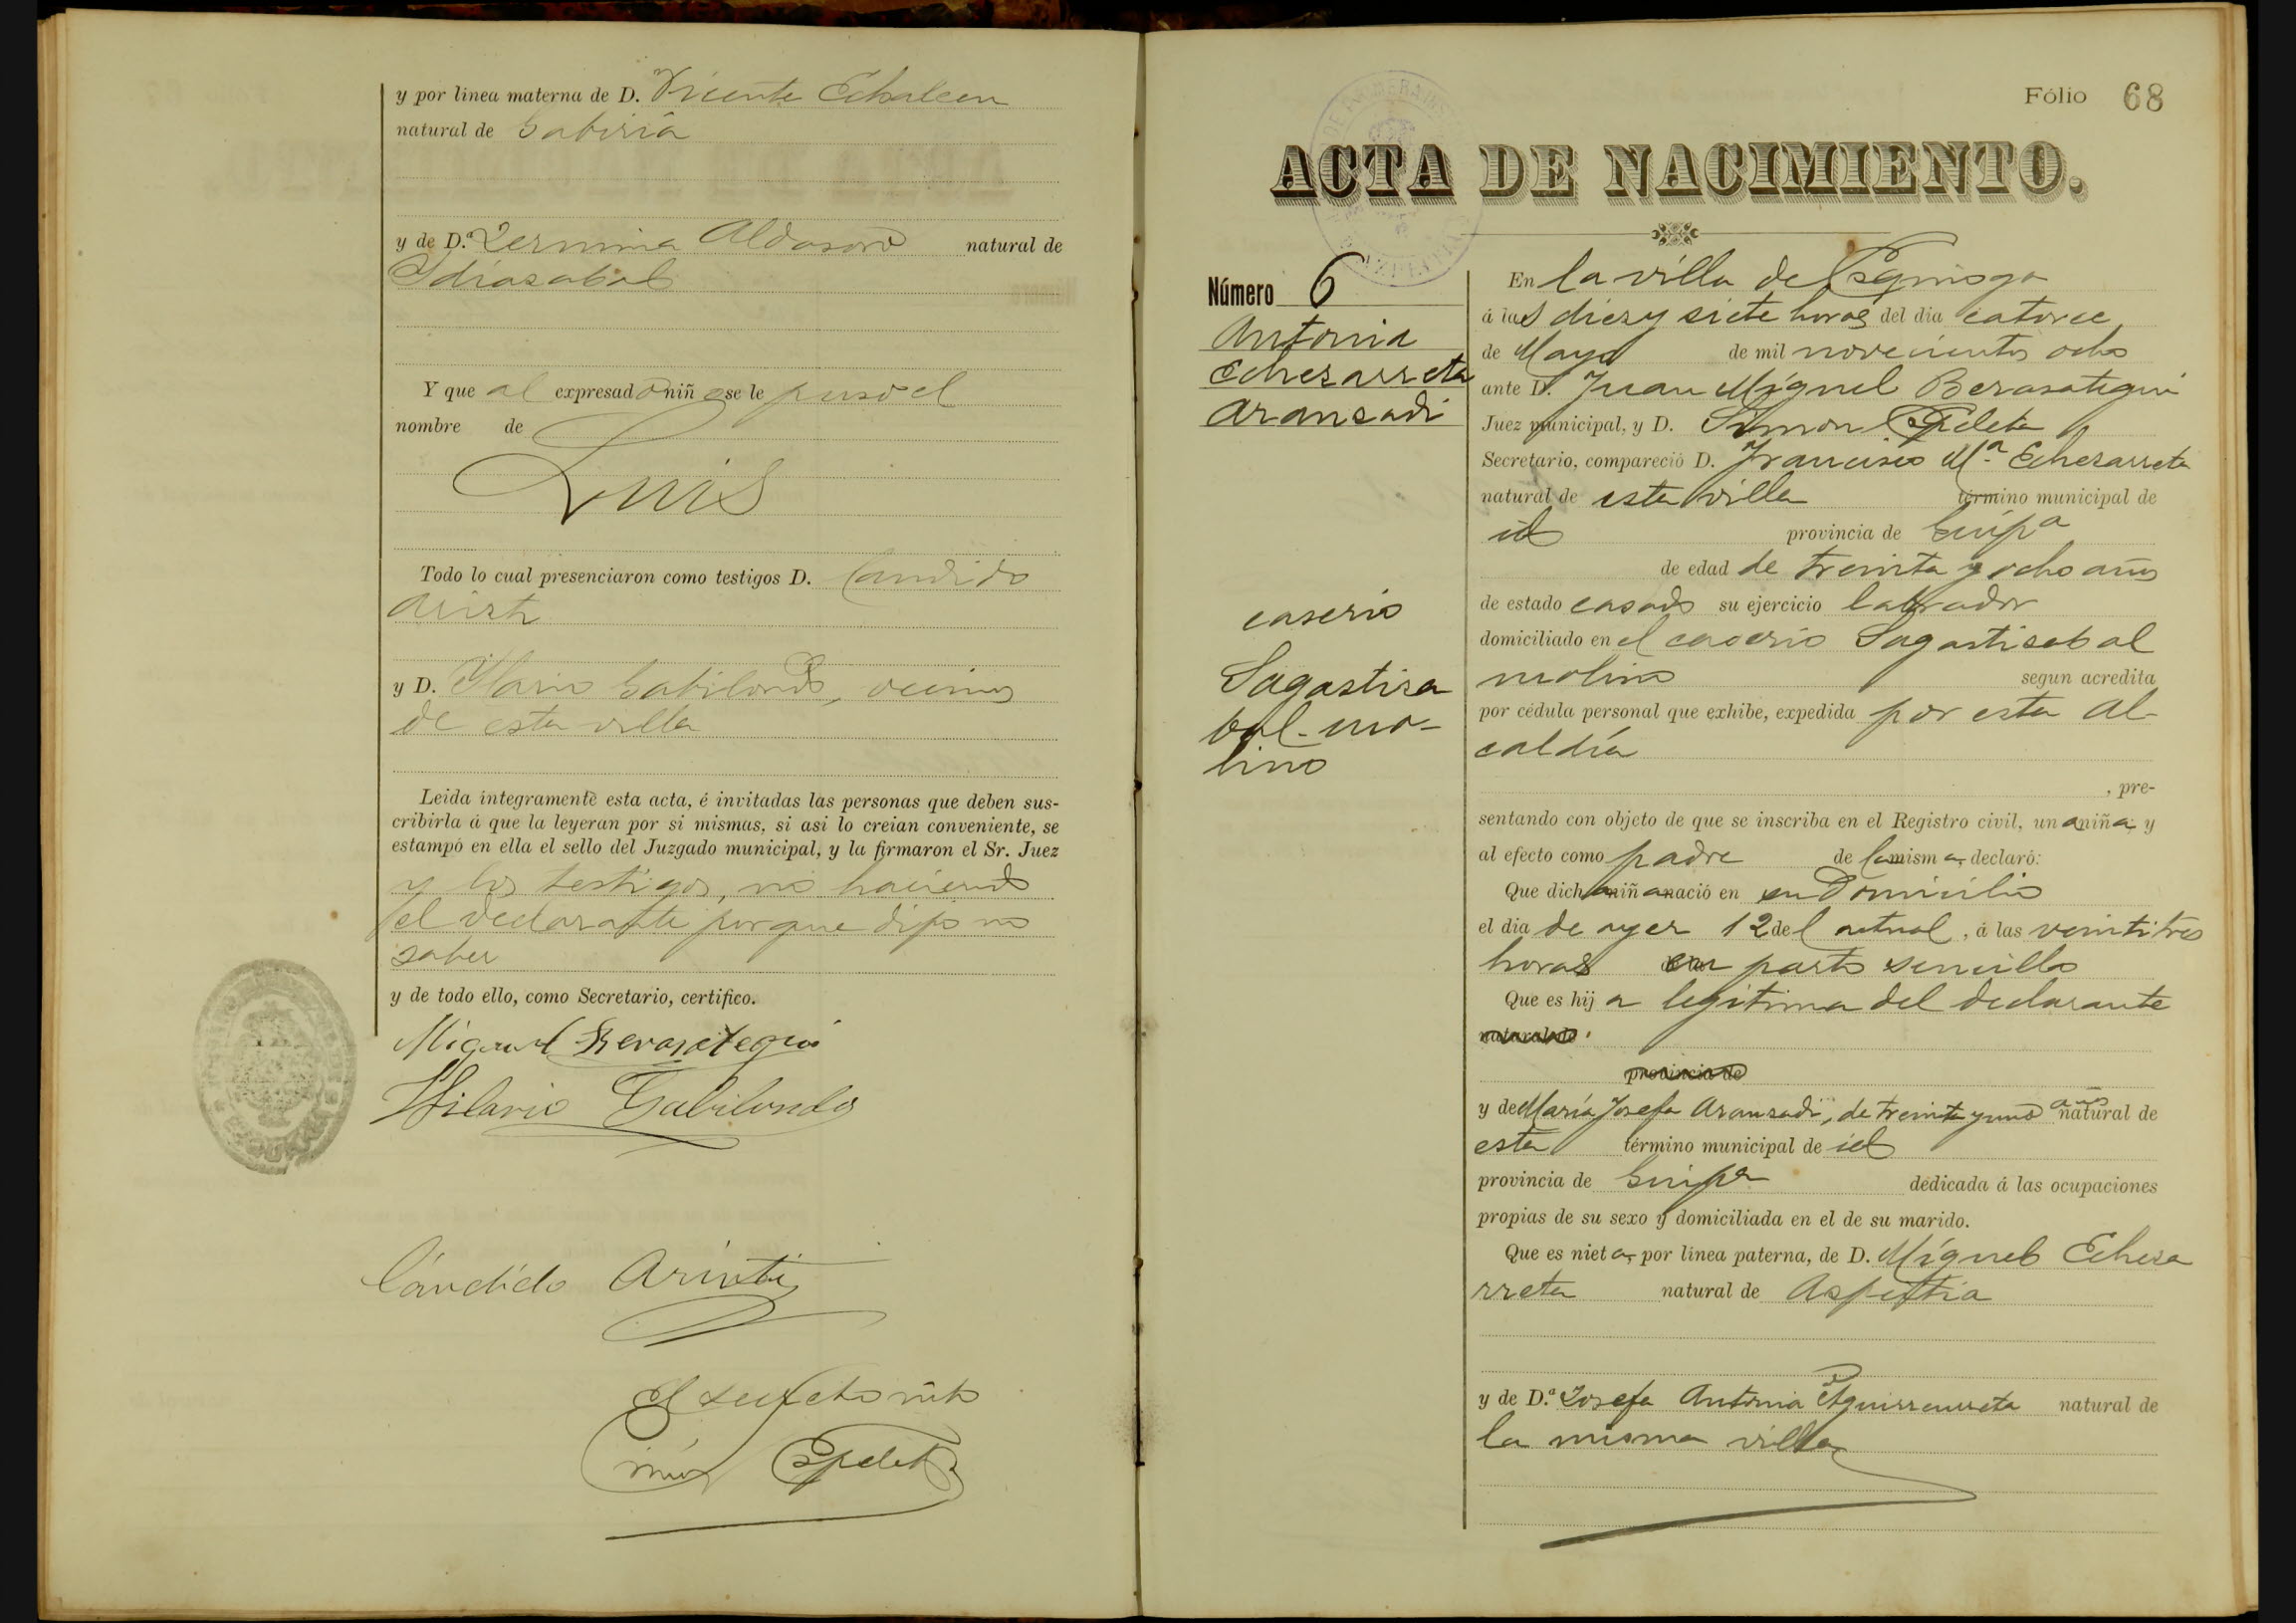 y por línea materna de D. Vicente Echaleen
natural de Gabiria
y de D.ª Fermina Aldasoro natural de
Idiazabal
Y que al expresado niño se le puso el
nombre de
Luis
Todo lo cual presenciaron como testigos D. Candido
Arizti
y D. Hilario Gabilondo, vecinos
de esta villa
Leida íntegramente esta acta, é invitadas las personas que deben sus-
cribirla á que la leyeran por si mismas, si asi lo creian conveniente, se
estampó en ella el sello del Juzgado municipal, y la firmaron el Sr. Juez
y los testigos, no haciendo
el declarante porque dijo no
saber
y de todo ello, como Secretario, certifico.
Miguel Berasategui
Hilario Gabilondo
Cándido Arizti
El secretario
Espeleta
Fólio 68
ACTA DE NACIMIENTO.
Número 6
Antonia
Echezarreta
Aranzadi
caserio
Sagastiza
bal-mo-
lino
En la villa de Ezquioga
á las diez y siete horas del dia catorce
de Mayo de mil novecientos ocho
ante D. Juan Miguel Berasategui
Juez municipal, y D. Simon Espeleta
Secretario, compareció D. Francisco M.ª Echezarreta
natural de esta villa término municipal de
id provincia de Guipª
de edad de treinta y ocho años
de estado casado su ejercicio labrador
domiciliado en el caserio Sagastisabal
molino segun acredita
por cédula personal que exhibe, expedida por esta Al-
caldía
, pre-
sentando con objeto de que se inscriba en el Registro civil, una niña y
al efecto como padre de la misma, declaró:
Que dicha niña nació en su Domicilio
el dia de ayer 12 del actual, á las veintitres
horas en parto sencillo
Que es hija legitima del declarante
natural de
provincia de
y de María Josefa Aranzadi, de treinta y uno años natural de
esta término municipal de id
provincia de Guipª dedicada á las ocupaciones
propias de su sexo y domiciliada en el de su marido.
Que es nieta, por línea paterna, de D. Miguel Echeza
rreta natural de Aspeitia
y de D.ª Josefa Antonia Aguirreurreta natural de
la misma villa